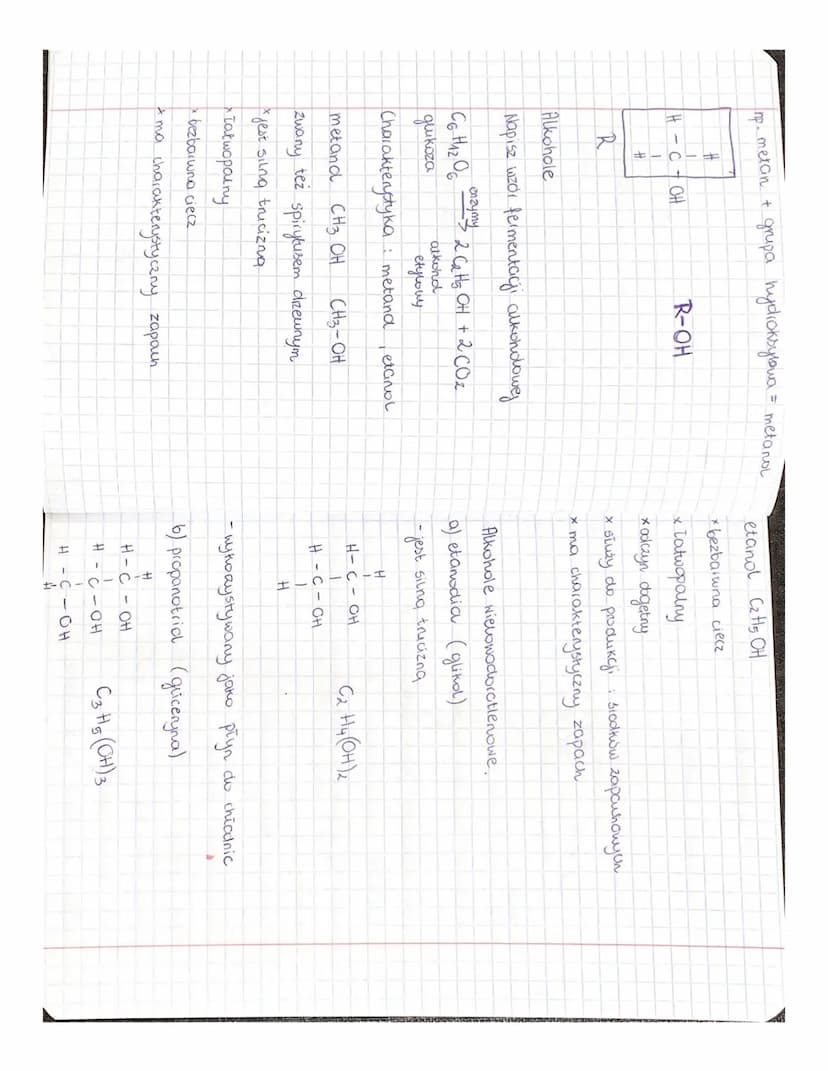 np. metan + grupa hydroksylowa = metanol
H
H - C - OH
H
R
R-OH
Alkohole
Napisz wzór fermentacji alkoholowej
C6H12O6 enzymy → 2C2H5OH + 2CO2
glukoza alkohol etylowy
Charakterystyka : metanol, etanol
metanol CH3OH CH3-OH
zwany też spirytusem drzewnym
x jest silną trucizną
x łatwopalny
x bezbarwna ciecz
x ma charakterystyczny zapach
etanol C2H5OH
x bezbarwna ciecz
x łatwopalny
x odczyn obojętny
x służy do produkcji : środków zapachowych
x ma charakterystyczny zapach
Alkohole wielowodorotlenowe.
a) etanodiol (glikol)
- jest silną trucizną
H
H - C - OH
H - C - OH
H
C2H4(OH)2
- wykorzystywany jako płyn do chłodnic
b) propanotriol (gliceryna)
H
H - C - OH
H - C - OH
H - C - OH
H
C3H5(OH)3